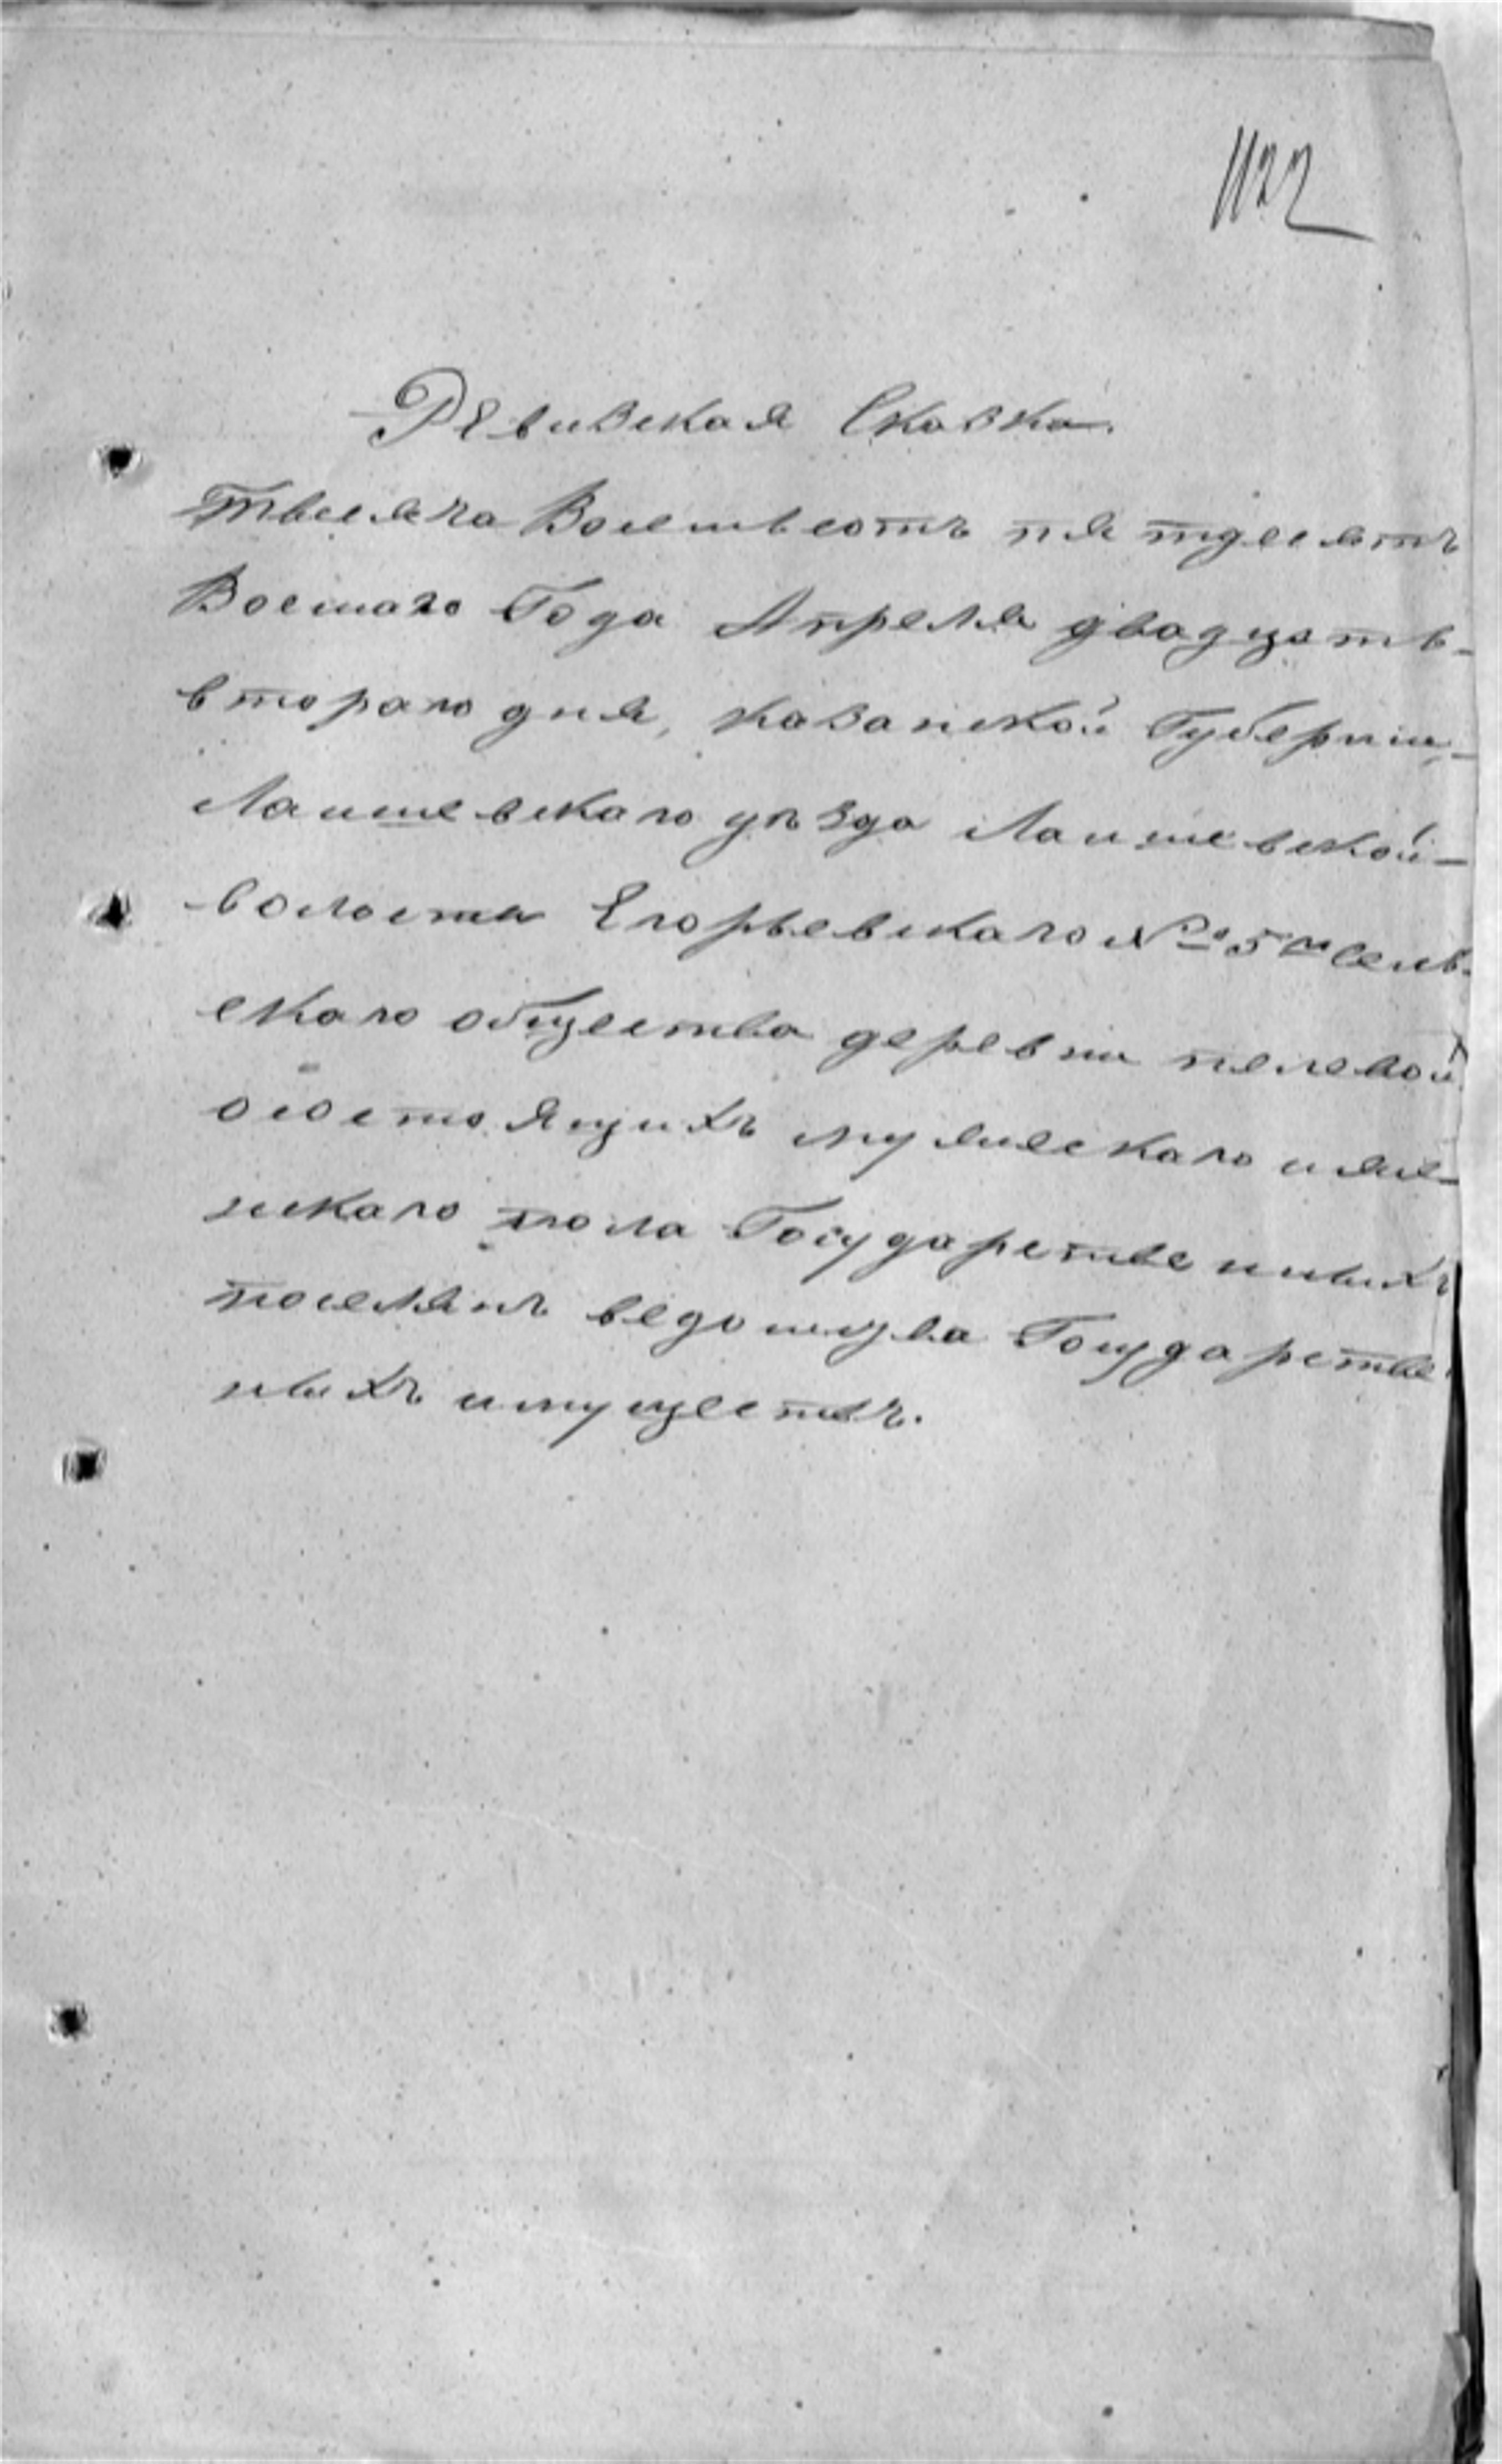 1122
Ревизская Сказка.
Тысяча Восемьсотъ пятдесятъ
Восмаго Года Апреля двадцать-
втораго дня, Казанской Губернии,
Лаишевскаго уѣзда Лаишевской
волости Егорьевскаго № 5го Сель-
скаго общества деревни пелевой
о состоящихъ мужескаго и жен-
нскаго пола Государственныхъ
поселянъ ведомства Государстве
ныхъ имуществъ.